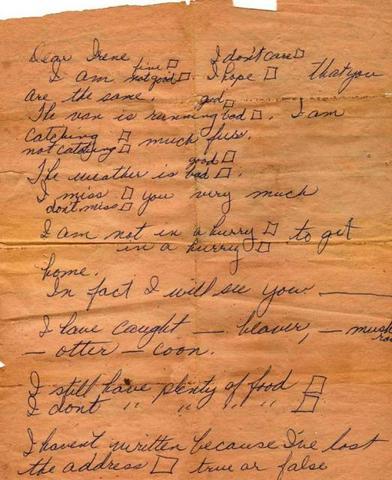 Dear Irene
fine □ I dont care □
I am not good □. I hope □ that you
are the same.
good □
The van is running bad □. I am
catching □ much furs.
not catching □
good □
The weather is bad □.
I miss □ you very much
dont miss □
I am not in a hurry □ to get
in a hurry □
home.
In fact I will see you
I have caught — beaver, — musk
rat
— otter — coon.
I still have plenty of food □
I dont " " " " □
I havent written because I've lost
the address □ true or false